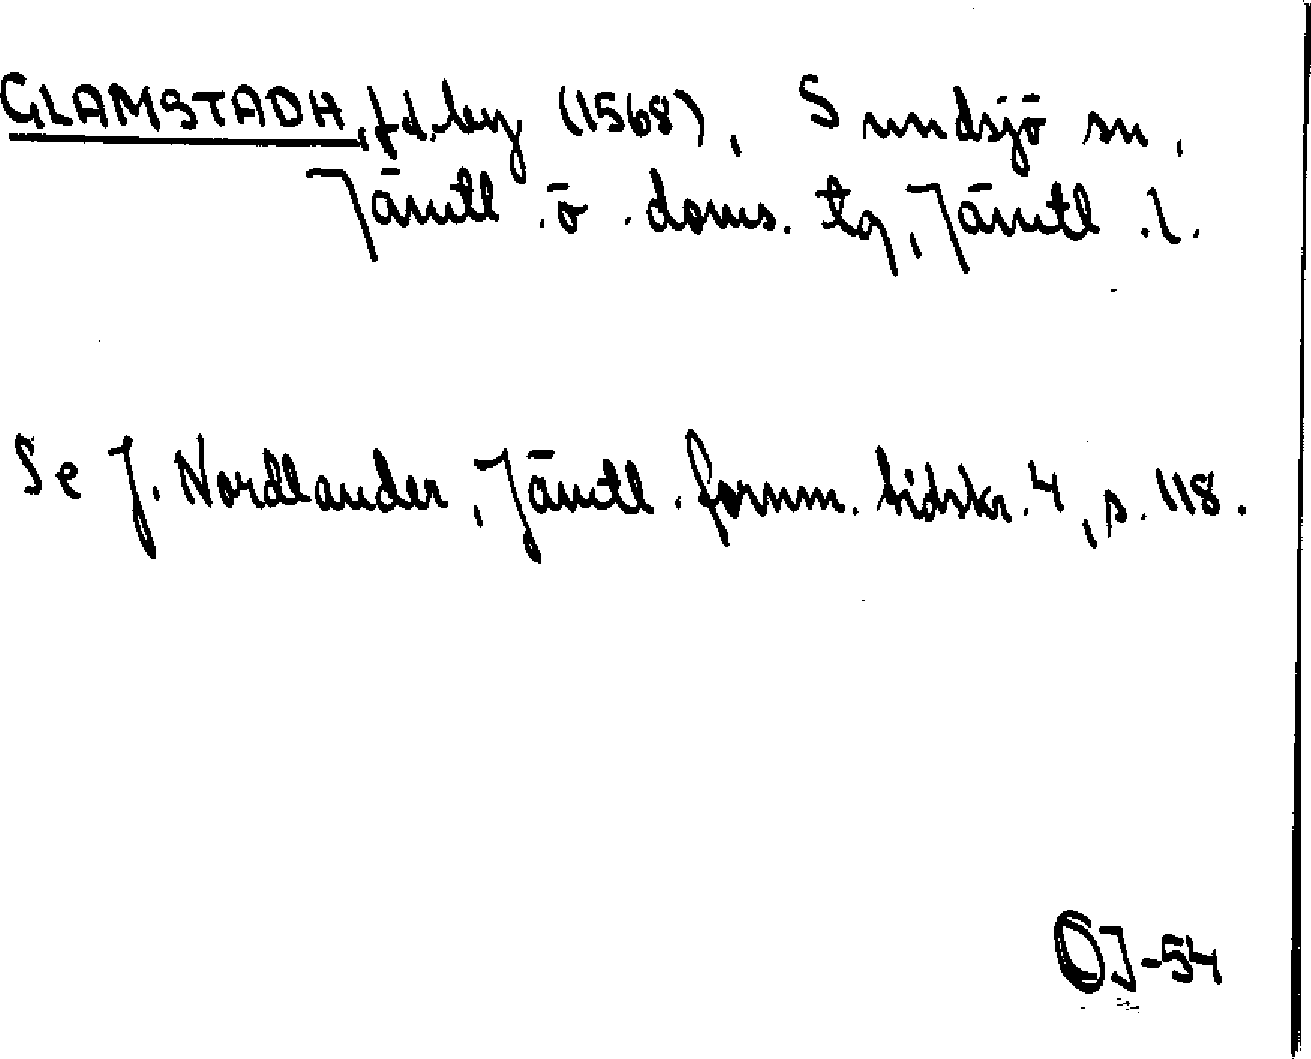 GLAMSTADH, f.d. by (1568), Sundsjö sn,
Jämtl. ö. doms. tg, Jämtl. l.
Se J. Nordlander, Jämtl. fornm. tidskr. 4, s. 118.
OJ-54